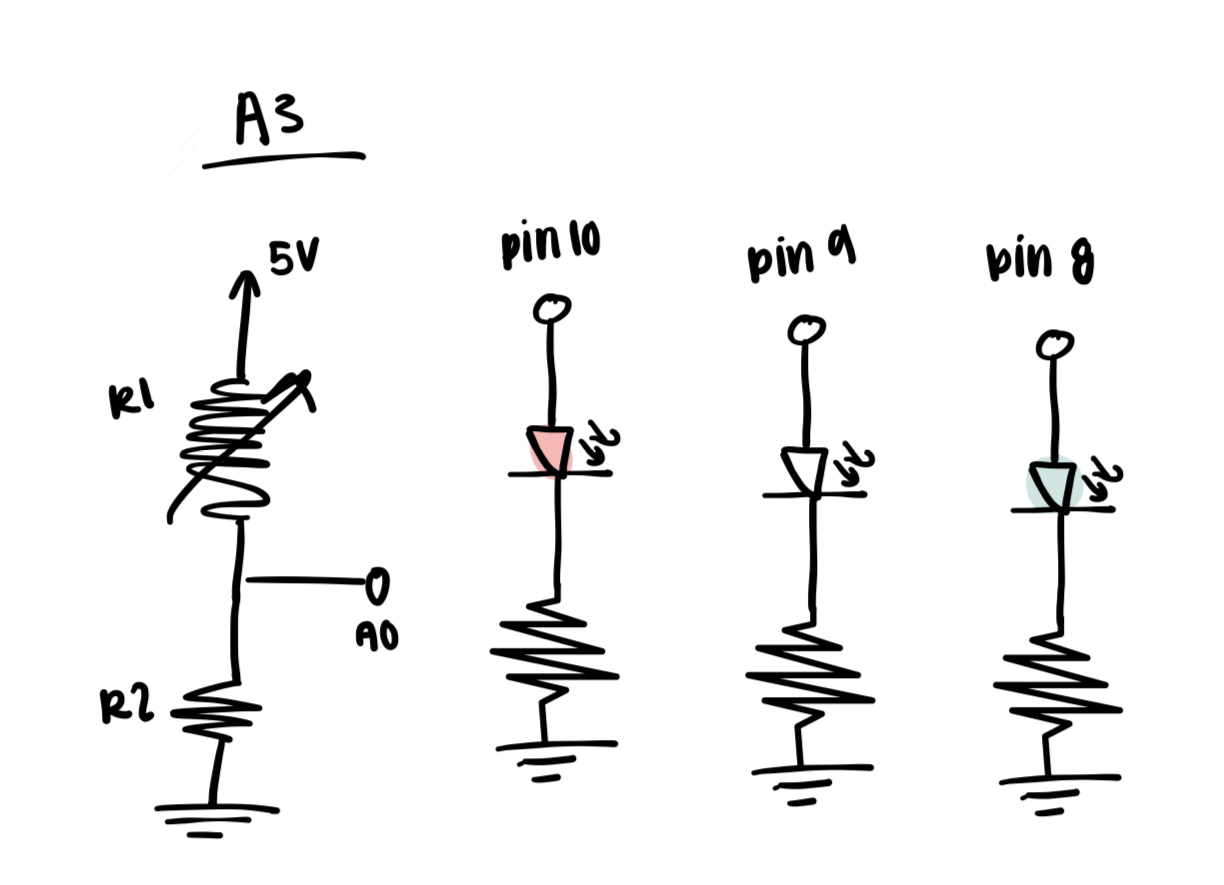 A3
5V
R1
A0
R2
pin 10
pin 9
pin 8